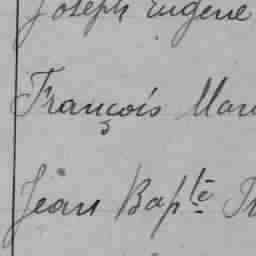 Joseph Eugène
François
Jean Bapte